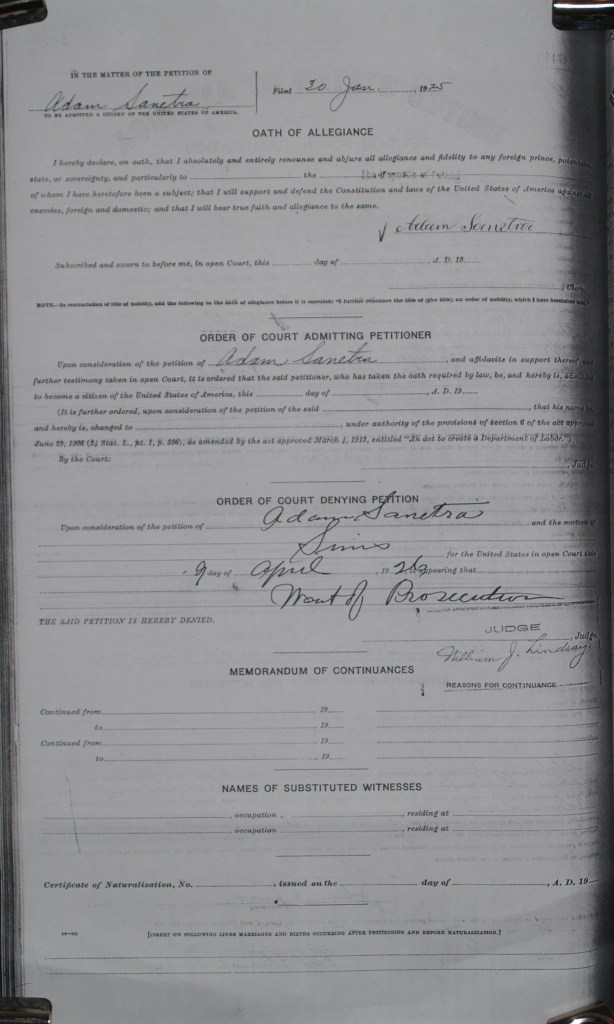 IN THE MATTER OF THE PETITION OF
Adam Sanetra
TO BE ADMITTED A CITIZEN OF THE UNITED STATES OF AMERICA.
Filed 20 Jan. , 1925
OATH OF ALLEGIANCE
I hereby declare, on oath, that I absolutely and entirely renounce and abjure all allegiance and fidelity to any foreign prince, potentate,
state, or sovereignty, and particularly to the
of whom I have heretofore been a subject; that I will support and defend the Constitution and laws of the United States of America against all
enemies, foreign and domestic; and that I will bear true faith and allegiance to the same.
Adam Sanetra
Subscribed and sworn to before me, in open Court, this day of , A. D. 19
, Clerk.
NOTE.—In renunciation of title of nobility, add the following to the oath of allegiance before it is executed: "I further renounce the title of (give title), an order of nobility, which I have heretofore held."
ORDER OF COURT ADMITTING PETITIONER
Upon consideration of the petition of Adam Sanetra , and affidavits in support thereof, and
further testimony taken in open Court, it is ordered that the said petitioner, who has taken the oath required by law, be, and hereby is, admitted
to become a citizen of the United States of America, this day of , A. D. 19
(It is further ordered, upon consideration of the petition of the said , that his name be,
and hereby is, changed to , under authority of the provisions of section 6 of the act approved
June 29, 1906 (34 Stat. L., pt. 1, p. 596), as amended by the act approved March 4, 1913, entitled "An act to create a Department of Labor.")
By the Court:
, Judge.
ORDER OF COURT DENYING PETITION
Upon consideration of the petition of Adam Sanetra and the motion of
Sims for the United States in open Court this
9 day of April , 1926, it appearing that
Want of Prosecution
THE SAID PETITION IS HEREBY DENIED.
JUDGE
, Judge.
William J. Lindsay
MEMORANDUM OF CONTINUANCES
REASONS FOR CONTINUANCE
Continued from , 19
to , 19
Continued from , 19
to , 19
NAMES OF SUBSTITUTED WITNESSES
, occupation , residing at
, occupation , residing at
Certificate of Naturalization, No. , issued on the day of , A. D. 19
[INSERT ON FOLLOWING LINES MARRIAGES AND BIRTHS OCCURRING AFTER PETITIONING AND BEFORE NATURALIZATION.]